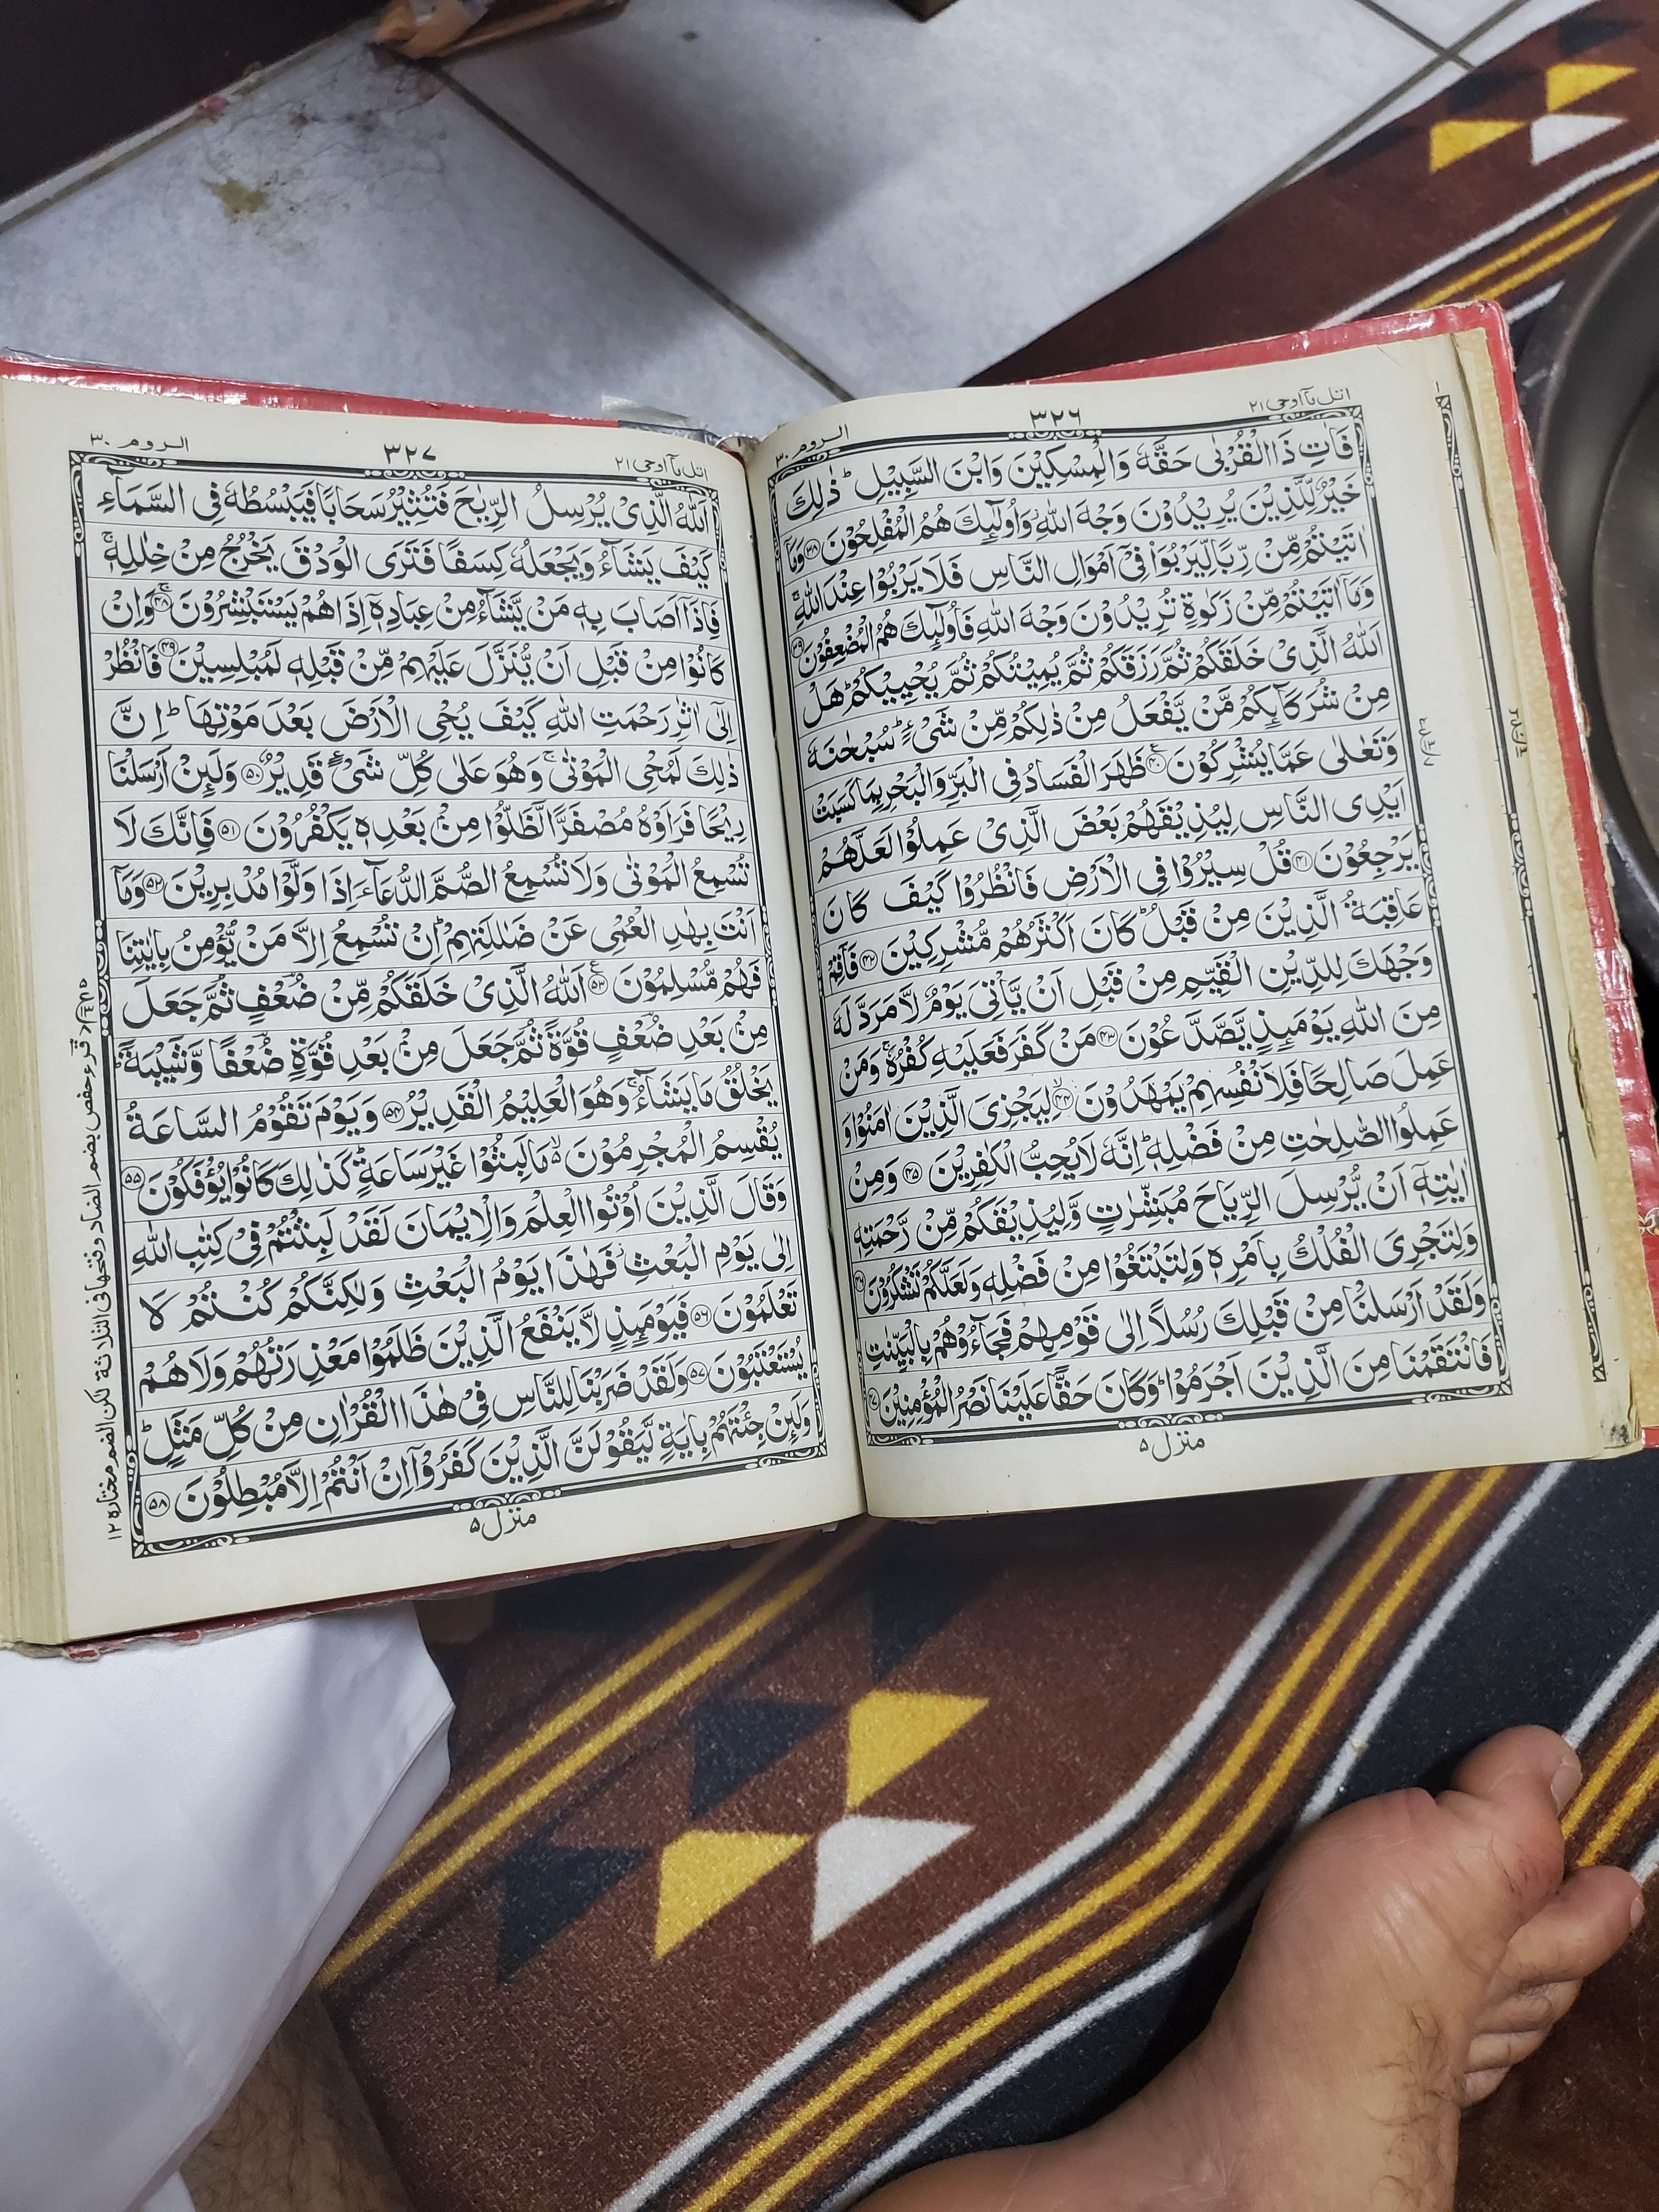 اتل مآ اوحی ۲۱
۳۲۶
الروم ۳۰
فَاٰتِ ذَا الْقُرْبٰى حَقَّهٗ وَالْمِسْكِيْنَ وَابْنَ السَّبِيْلِ ؕ ذٰلِكَ
خَيْرٌ لِّلَّذِيْنَ يُرِيْدُوْنَ وَجْهَ اللّٰهِ ؗ وَاُولٰٓئِكَ هُمُ الْمُفْلِحُوْنَ ۝۳۸ وَمَاۤ
اٰتَيْتُمْ مِّنْ رِّبًا لِّيَرْبُوَا۠ فِيْۤ اَمْوَالِ النَّاسِ فَلَا يَرْبُوْا عِنْدَ اللّٰهِ ۚ
وَمَاۤ اٰتَيْتُمْ مِّنْ زَكٰوةٍ تُرِيْدُوْنَ وَجْهَ اللّٰهِ فَاُولٰٓئِكَ هُمُ الْمُضْعِفُوْنَ ۝۳۹
اَللّٰهُ الَّذِيْ خَلَقَكُمْ ثُمَّ رَزَقَكُمْ ثُمَّ يُمِيْتُكُمْ ثُمَّ يُحْيِيْكُمْ ؕ هَلْ
مِنْ شُرَكَآئِكُمْ مَّنْ يَّفْعَلُ مِنْ ذٰلِكُمْ مِّنْ شَيْءٍ ؕ سُبْحٰنَهٗ
وَتَعٰلٰى عَمَّا يُشْرِكُوْنَ ۝۴۰ ظَهَرَ الْفَسَادُ فِي الْبَرِّ وَالْبَحْرِ بِمَا كَسَبَتْ
اَيْدِي النَّاسِ لِيُذِيْقَهُمْ بَعْضَ الَّذِيْ عَمِلُوْا لَعَلَّهُمْ
يَرْجِعُوْنَ ۝۴۱ قُلْ سِيْرُوْا فِي الْاَرْضِ فَانْظُرُوْا كَيْفَ كَانَ
عَاقِبَةُ الَّذِيْنَ مِنْ قَبْلُ ؕ كَانَ اَكْثَرُهُمْ مُّشْرِكِيْنَ ۝۴۲ فَاَقِمْ
وَجْهَكَ لِلدِّيْنِ الْقَيِّمِ مِنْ قَبْلِ اَنْ يَّاْتِيَ يَوْمٌ لَّا مَرَدَّ لَهٗ
مِنَ اللّٰهِ يَوْمَئِذٍ يَّصَّدَّعُوْنَ ۝۴۳ مَنْ كَفَرَ فَعَلَيْهِ كُفْرُهٗ ۚ وَمَنْ
عَمِلَ صَالِحًا فَلِاَنْفُسِهِمْ يَمْهَدُوْنَ ۝۴۴ لِيَجْزِيَ الَّذِيْنَ اٰمَنُوْا وَ
عَمِلُوا الصّٰلِحٰتِ مِنْ فَضْلِهٖ ؕ اِنَّهٗ لَا يُحِبُّ الْكٰفِرِيْنَ ۝۴۵ وَمِنْ
اٰيٰتِهٖۤ اَنْ يُّرْسِلَ الرِّيَاحَ مُبَشِّرٰتٍ وَّلِيُذِيْقَكُمْ مِّنْ رَّحْمَتِهٖ
وَلِتَجْرِيَ الْفُلْكُ بِاَمْرِهٖ وَلِتَبْتَغُوْا مِنْ فَضْلِهٖ وَلَعَلَّكُمْ تَشْكُرُوْنَ ۝۴۶
وَلَقَدْ اَرْسَلْنَا مِنْ قَبْلِكَ رُسُلًا اِلٰى قَوْمِهِمْ فَجَآءُوْهُمْ بِالْبَيِّنٰتِ
فَانْتَقَمْنَا مِنَ الَّذِيْنَ اَجْرَمُوْا ؕ وَكَانَ حَقًّا عَلَيْنَا نَصْرُ الْمُؤْمِنِيْنَ ۝۴۷
منزل ۵
اتل مآ اوحی ۲۱
۳۲۷
الروم ۳۰
اَللّٰهُ الَّذِيْ يُرْسِلُ الرِّيٰحَ فَتُثِيْرُ سَحَابًا فَيَبْسُطُهٗ فِي السَّمَآءِ
كَيْفَ يَشَآءُ وَيَجْعَلُهٗ كِسَفًا فَتَرَى الْوَدْقَ يَخْرُجُ مِنْ خِلٰلِهٖ ۚ
فَاِذَاۤ اَصَابَ بِهٖ مَنْ يَّشَآءُ مِنْ عِبَادِهٖۤ اِذَا هُمْ يَسْتَبْشِرُوْنَ ۝۴۸ وَاِنْ
كَانُوْا مِنْ قَبْلِ اَنْ يُّنَزَّلَ عَلَيْهِمْ مِّنْ قَبْلِهٖ لَمُبْلِسِيْنَ ۝۴۹ فَانْظُرْ
اِلٰٓى اٰثٰرِ رَحْمَتِ اللّٰهِ كَيْفَ يُحْيِ الْاَرْضَ بَعْدَ مَوْتِهَا ؕ اِنَّ
ذٰلِكَ لَمُحْيِ الْمَوْتٰى ۚ وَهُوَ عَلٰى كُلِّ شَيْءٍ قَدِيْرٌ ۝۵۰ وَلَئِنْ اَرْسَلْنَا
رِيْحًا فَرَاَوْهُ مُصْفَرًّا لَّظَلُّوْا مِنْۢ بَعْدِهٖ يَكْفُرُوْنَ ۝۵۱ فَاِنَّكَ لَا
تُسْمِعُ الْمَوْتٰى وَلَا تُسْمِعُ الصُّمَّ الدُّعَآءَ اِذَا وَلَّوْا مُدْبِرِيْنَ ۝۵۲ وَمَاۤ
اَنْتَ بِهٰدِ الْعُمْيِ عَنْ ضَلٰلَتِهِمْ ؕ اِنْ تُسْمِعُ اِلَّا مَنْ يُّؤْمِنُ بِاٰيٰتِنَا
فَهُمْ مُّسْلِمُوْنَ ۝۵۳ اَللّٰهُ الَّذِيْ خَلَقَكُمْ مِّنْ ضُعْفٍ ثُمَّ جَعَلَ
مِنْۢ بَعْدِ ضُعْفٍ قُوَّةً ثُمَّ جَعَلَ مِنْۢ بَعْدِ قُوَّةٍ ضُعْفًا وَّشَيْبَةً ؕ
يَخْلُقُ مَا يَشَآءُ ۚ وَهُوَ الْعَلِيْمُ الْقَدِيْرُ ۝۵۴ وَيَوْمَ تَقُوْمُ السَّاعَةُ
يُقْسِمُ الْمُجْرِمُوْنَ ۙ مَا لَبِثُوْا غَيْرَ سَاعَةٍ ؕ كَذٰلِكَ كَانُوْا يُؤْفَكُوْنَ ۝۵۵
وَقَالَ الَّذِيْنَ اُوْتُوا الْعِلْمَ وَالْاِيْمَانَ لَقَدْ لَبِثْتُمْ فِيْ كِتٰبِ اللّٰهِ
اِلٰى يَوْمِ الْبَعْثِ ؗ فَهٰذَا يَوْمُ الْبَعْثِ وَلٰكِنَّكُمْ كُنْتُمْ لَا
تَعْلَمُوْنَ ۝۵۶ فَيَوْمَئِذٍ لَّا يَنْفَعُ الَّذِيْنَ ظَلَمُوْا مَعْذِرَتُهُمْ وَلَا هُمْ
يُسْتَعْتَبُوْنَ ۝۵۷ وَلَقَدْ ضَرَبْنَا لِلنَّاسِ فِيْ هٰذَا الْقُرْاٰنِ مِنْ كُلِّ مَثَلٍ ؕ
وَلَئِنْ جِئْتَهُمْ بِاٰيَةٍ لَّيَقُوْلَنَّ الَّذِيْنَ كَفَرُوْۤا اِنْ اَنْتُمْ اِلَّا مُبْطِلُوْنَ ۝۵۸
منزل ۵
قرء حفص بضم الضاد وفتحها فى الثلاثة لكن الضم مختارہ ۱۲